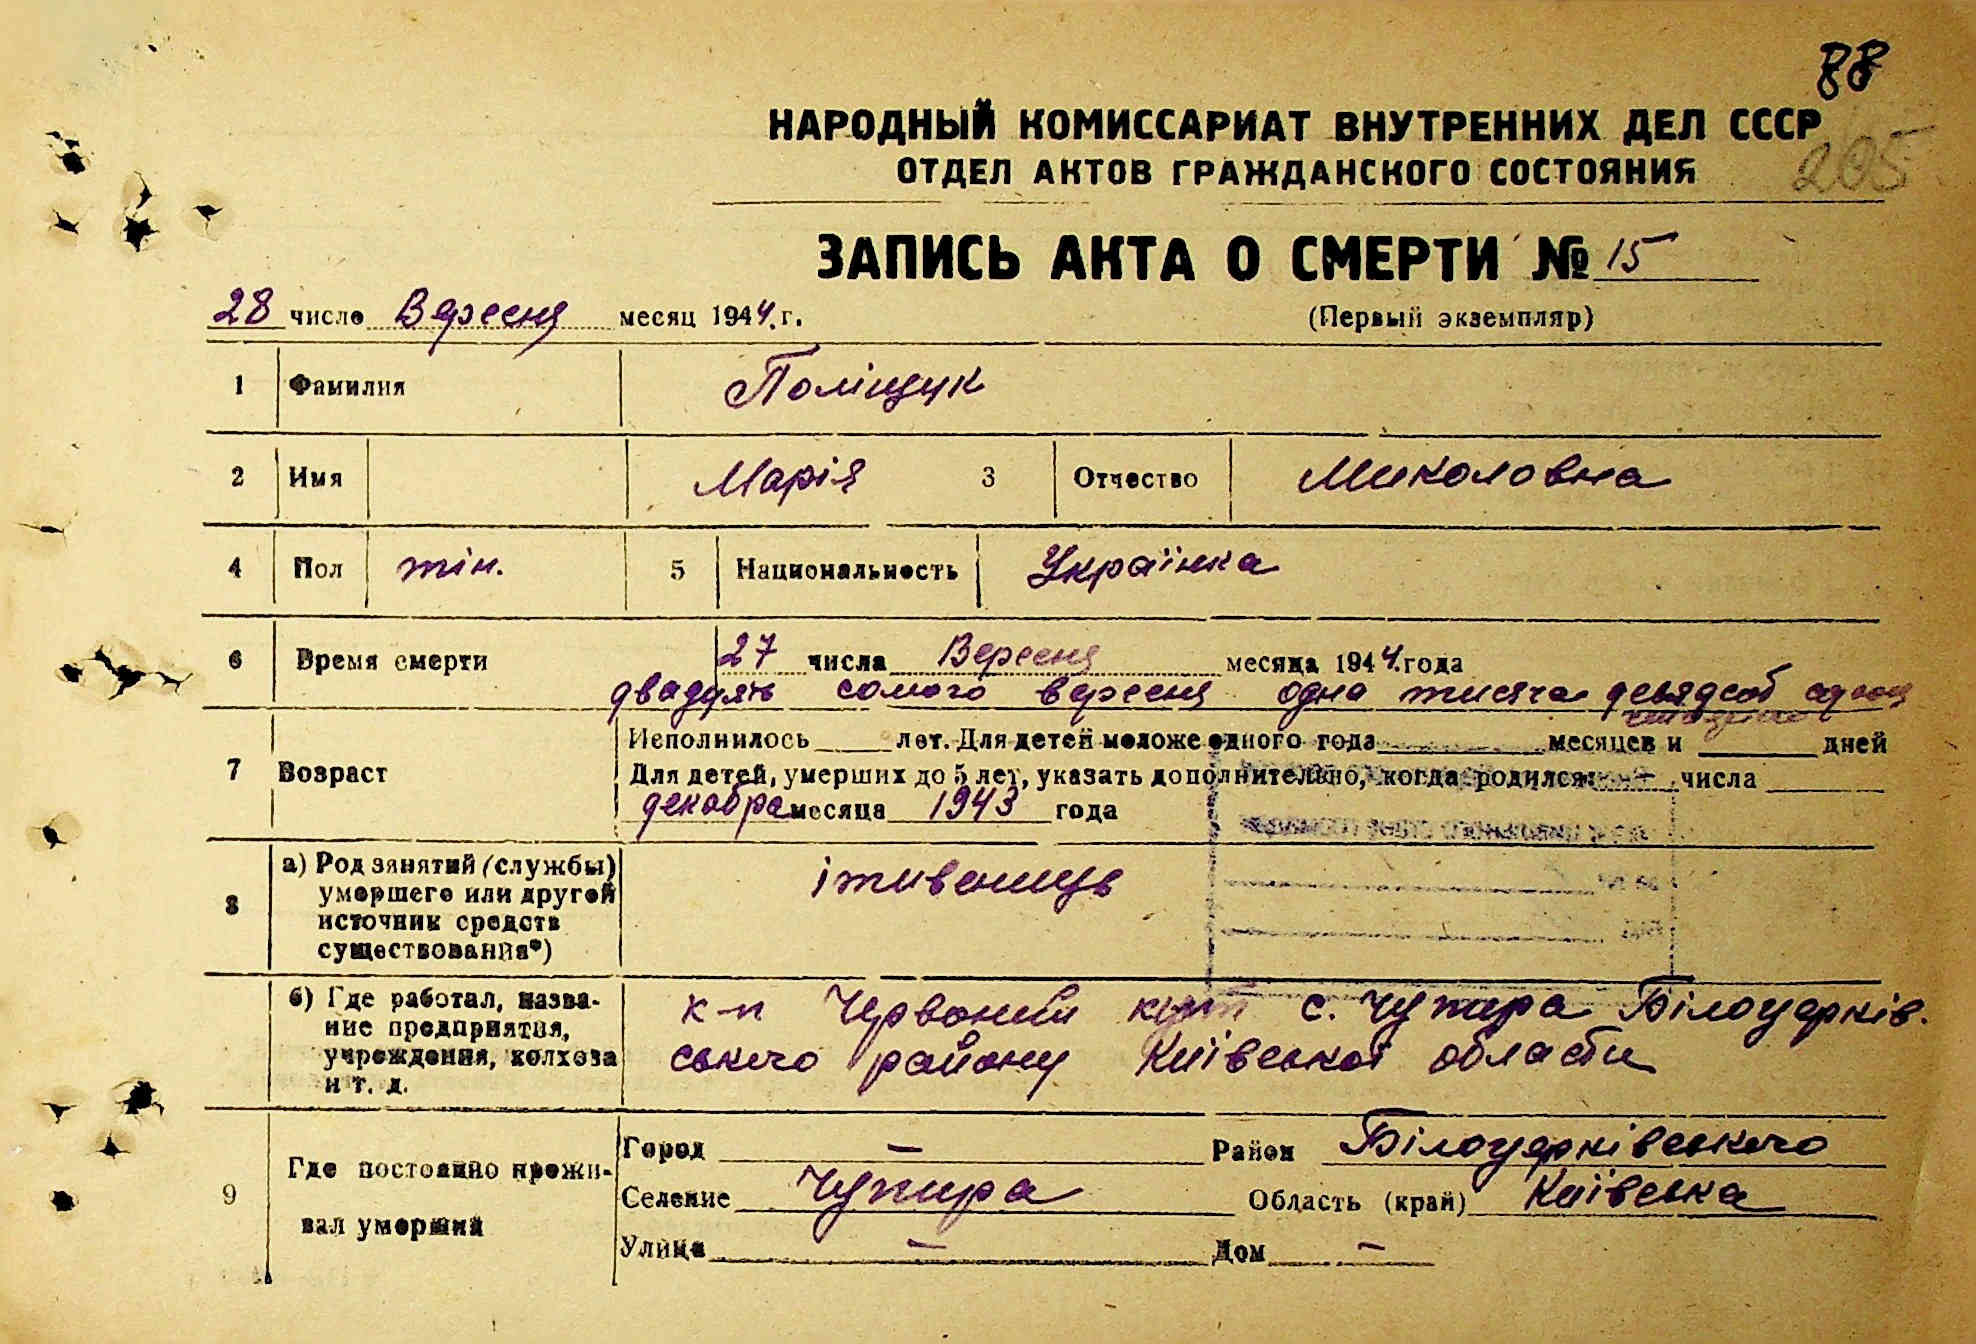 88
НАРОДНЫЙ КОМИССАРИАТ ВНУТРЕННИХ ДЕЛ СССР
205
ОТДЕЛ АКТОВ ГРАЖДАНСКОГО СОСТОЯНИЯ
ЗАПИСЬ АКТА О СМЕРТИ № 15
28 число Вересня месяц 1944 г.
(Первый экземпляр)
1 Фамилия Поліщук
2 Имя Марія 3 Отчество Миколовна
4 Пол жін. 5 Национальность Українка
6 Время смерти 27 числа Вересня месяца 1944. года
двадцять сомого вересня одна тисяча девядсоб
7 Возраст Исполнилось лет. Для детей моложе одного года месяцев и дней
Для детей, умерших до 5 лет, указать дополнительно, когда родился: — числа
декабра месяца 1943 года
8 а) Род занятий (службы) умершего или другой источник средств существования*)
іживенцув
б) Где работал, название предприятия, учреждения, колхоза и т. д.
к-п Червоний кут с. Чупира Білоцерків.
ського району Київської области
9 Где постоянно проживал умерший
Город — Район Білоцерківського
Селение Чупира Область (край) Київська
Улица — Дом —